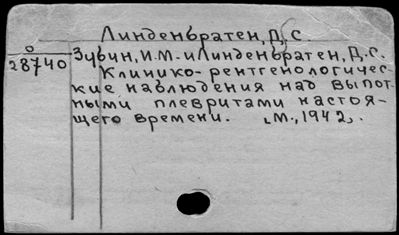 Линденбратен, Д. С.
о
28740
Зубин, И.М. и Линденбратен, Д.С.
Клинико-рентгенологичес-
кие наблюдения над выпот-
ными плевритами настоя-
щего времени. М., 1942.